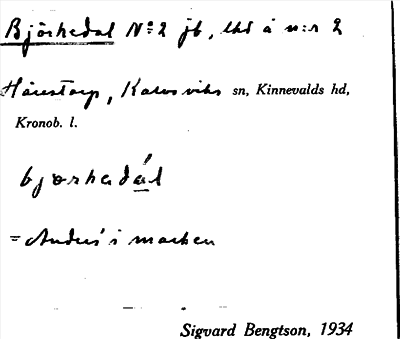 Björkedal No 2 jb, lht å n:r 2
Hårestorp, Kalvsviks sn, Kinnevalds hd,
Kronob. l.
bjørkadál
= Anders i marken
Sigvard Bengtson, 1934